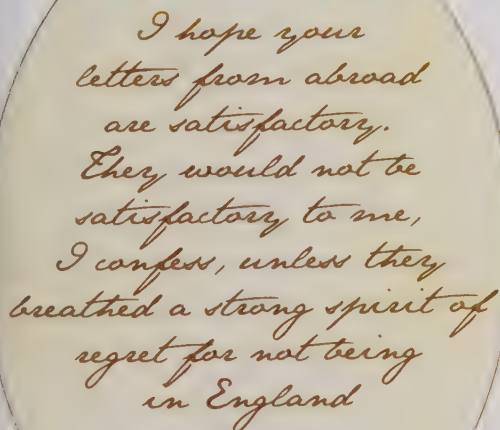 I hope your
letters from abroad
are satisfactory.
They would not be
satisfactory to me,
I confess, unless they
breathed a strong spirit of
regret for not being
in England